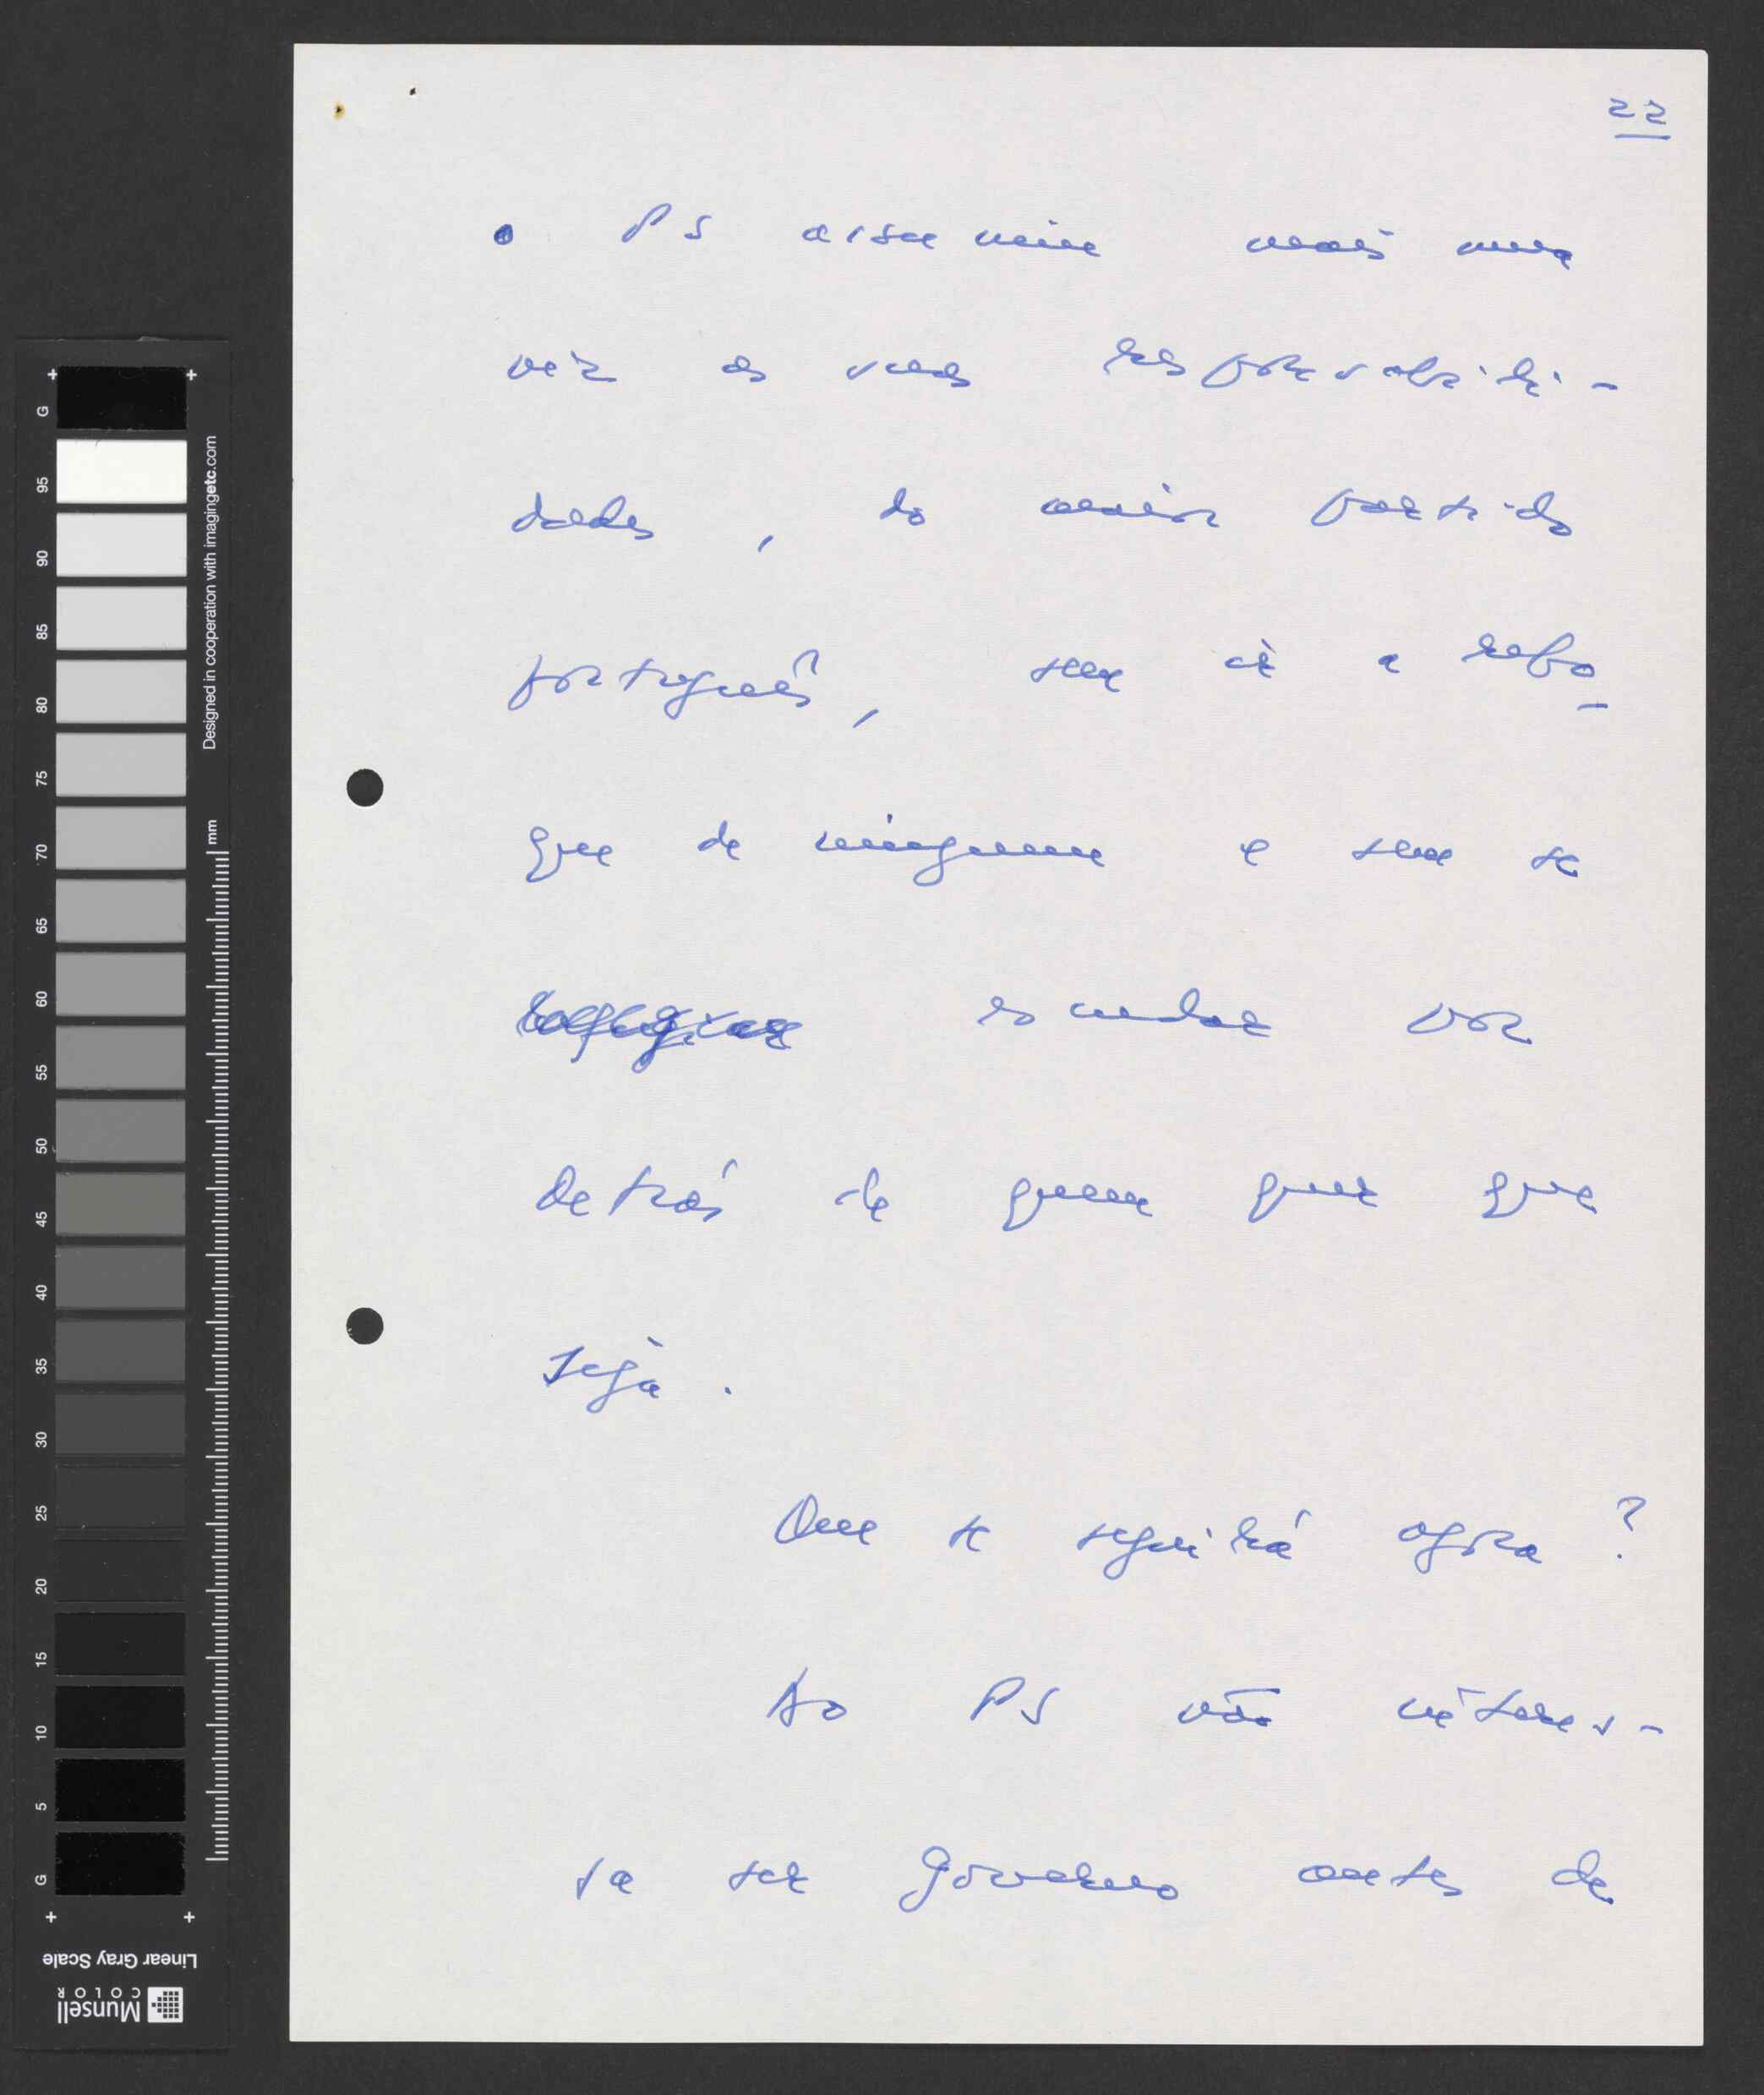 22
• PS assumiu mais uma
vez as suas responsabili-
dades, do maior partido
português, sem ir a rebo-
que de ninguem e sem se
escudar por
detrás de quem quer que
seja.
Que se seguirá agora?
Ao PS não interes-
sa ser Governo antes de
G 95 90 85 80 75 70 65 60 55 50 45 40 35 30 25 20 15 10 5 G
Designed in cooperation with imagingetc.com
mm
Linear Gray Scale
Munsell
COLOR